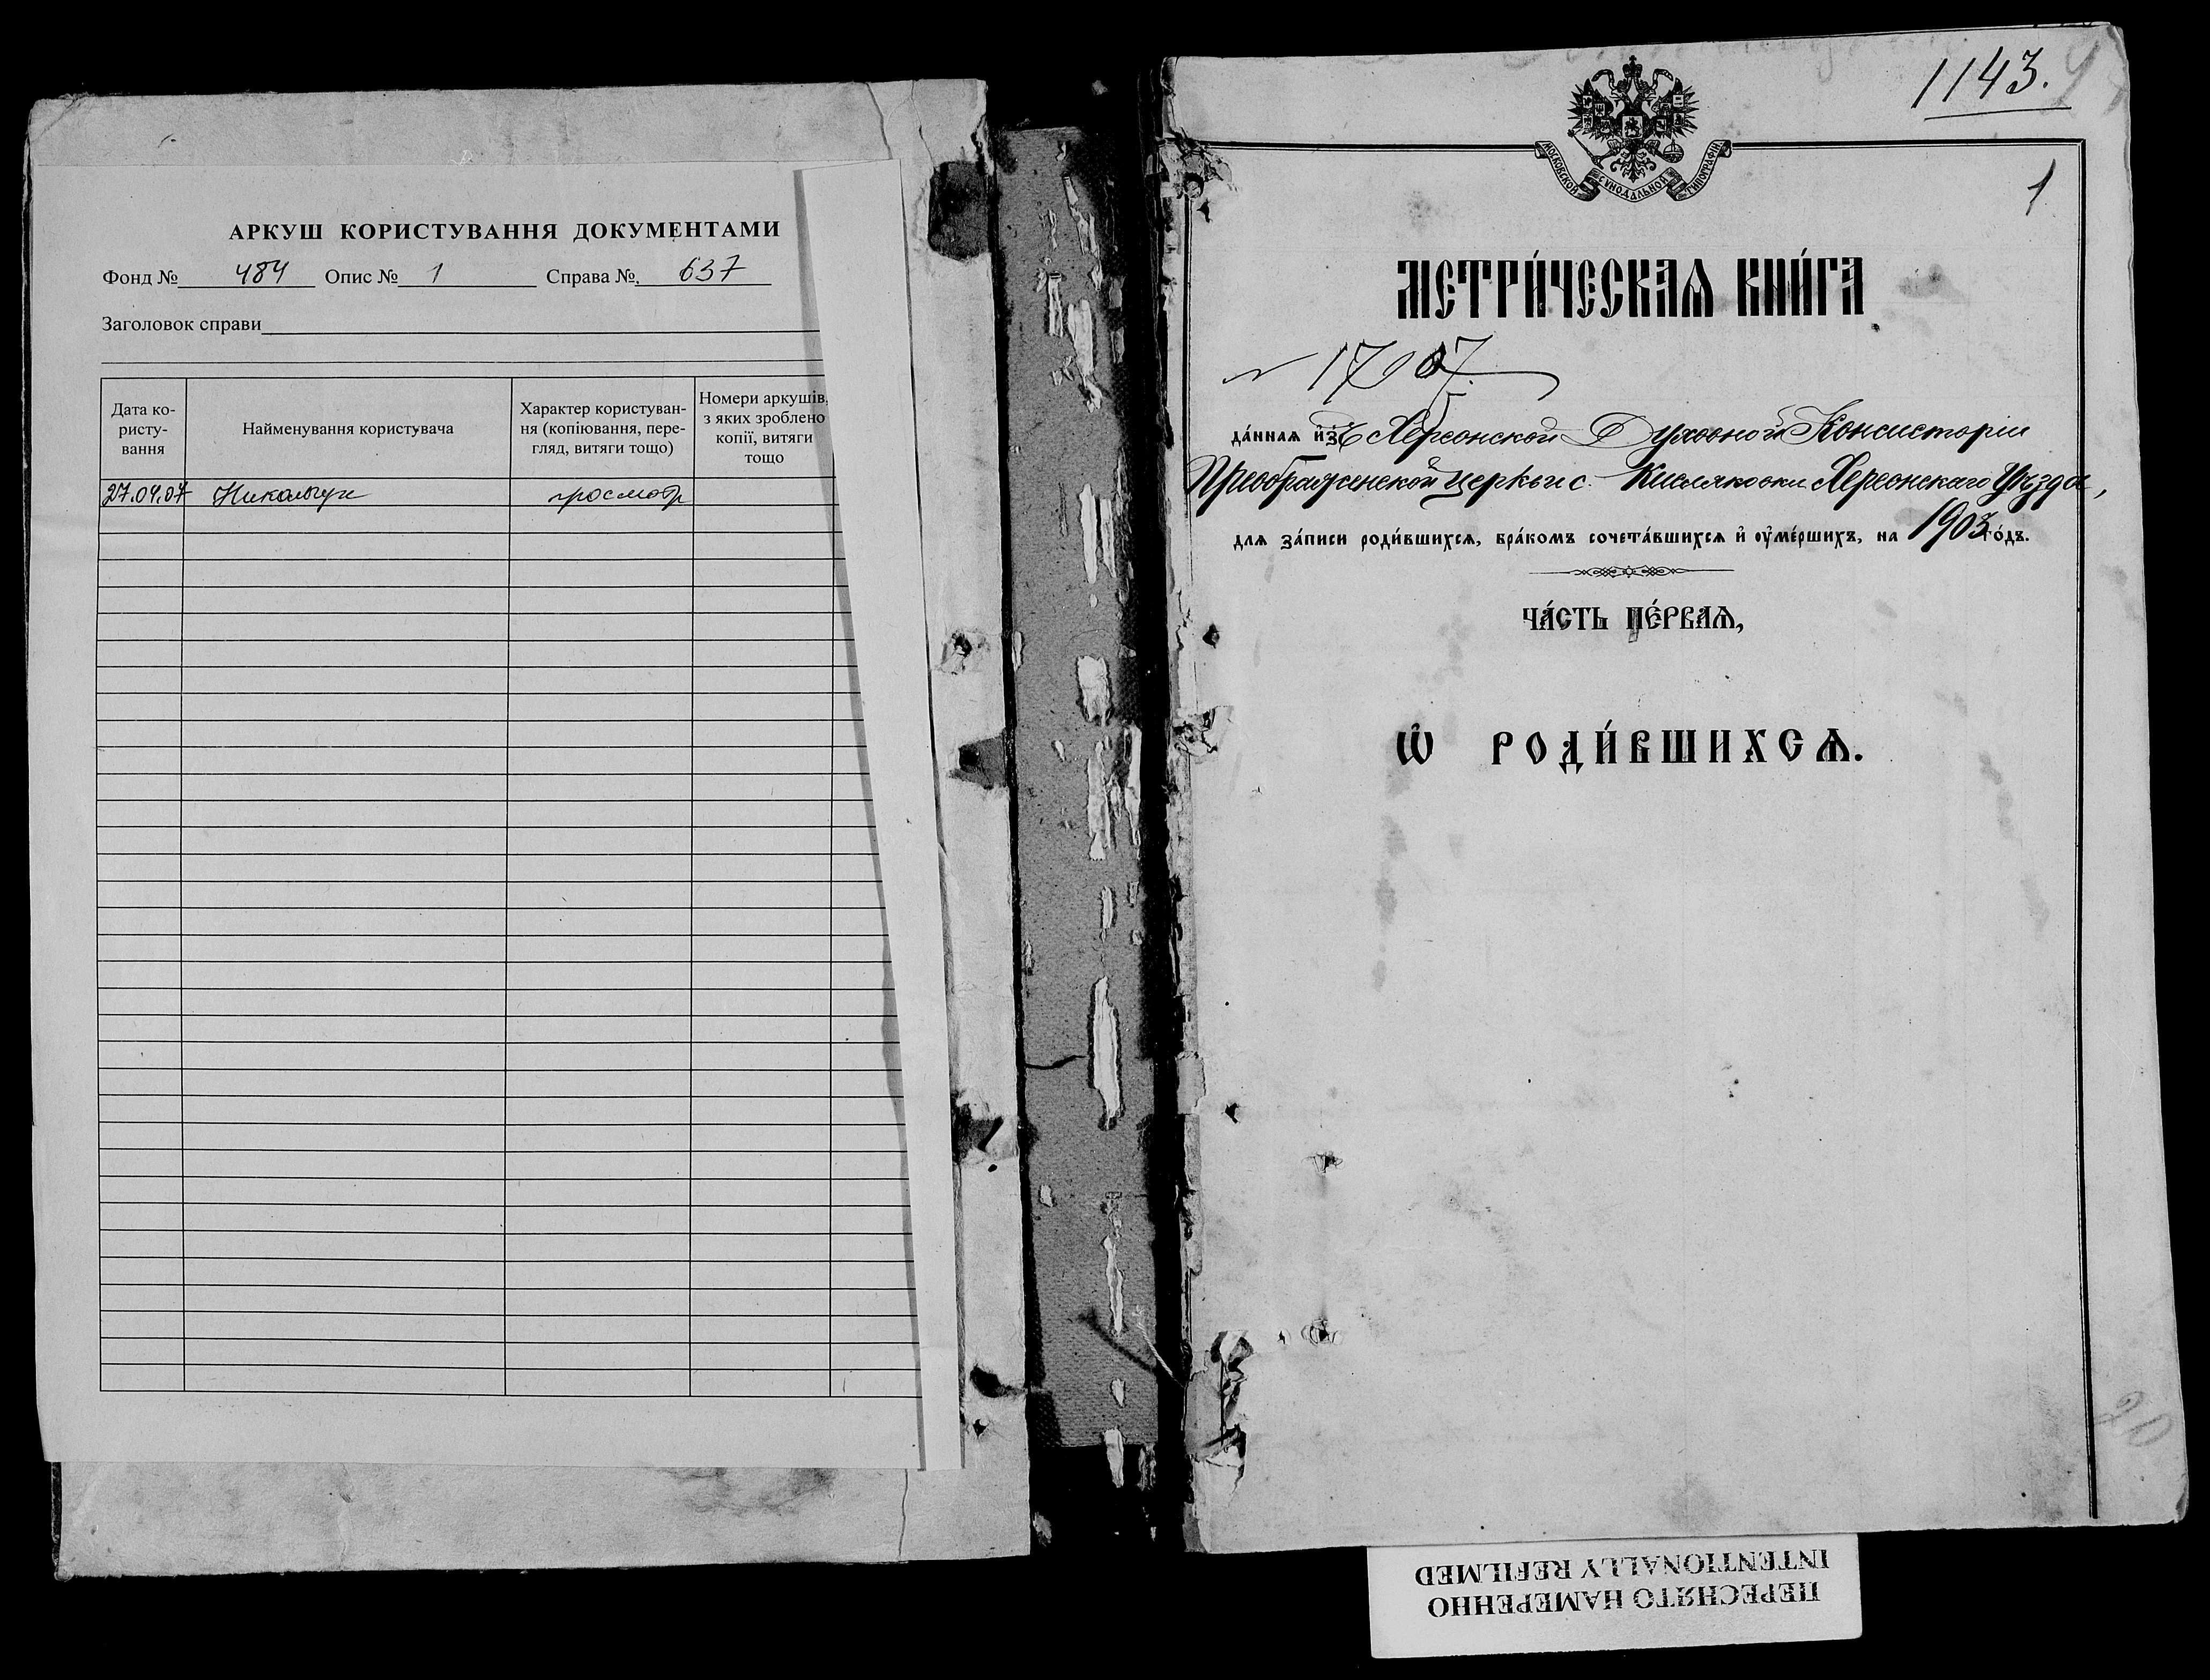 АРКУШ КОРИСТУВАННЯ ДОКУМЕНТАМИ
Фонд № 484 Опис № 1 Справа № 637
Заголовок справи
Дата ко-
ристу-
вання
Найменування користувача
Характер користуван-
ня (копіювання, пере-
гляд, витяги тощо)
Номери аркушів,
з яких зроблено
копії, витяги
тощо
27.04.07 просмотр
1143.
МОСКОВСКОЙ СУНОДАЛЬНОЙ ТИПОГРАФІИ
1
МЕТРИ́ЧЕСКАѦ КНИ́ГА
да́нная и҆зъ Херсонской Духовной Консисторіи
Преображенской церкви с. Кисляковки Херсонскаго Уѣзда,
для за́писи роди́вшихсѧ, бра́комъ сочета́вшихсѧ и҆ оу҆ме́ршихъ, на 1903 го́дъ.
ЧА́СТЬ ПЕ́РВАѦ,
Ѡ҆ РОДИ́ВШИХСѦ.
20
ПЕРЕСНЯТО НАМЕРЕННО
INTENTIONALLY REFILMED